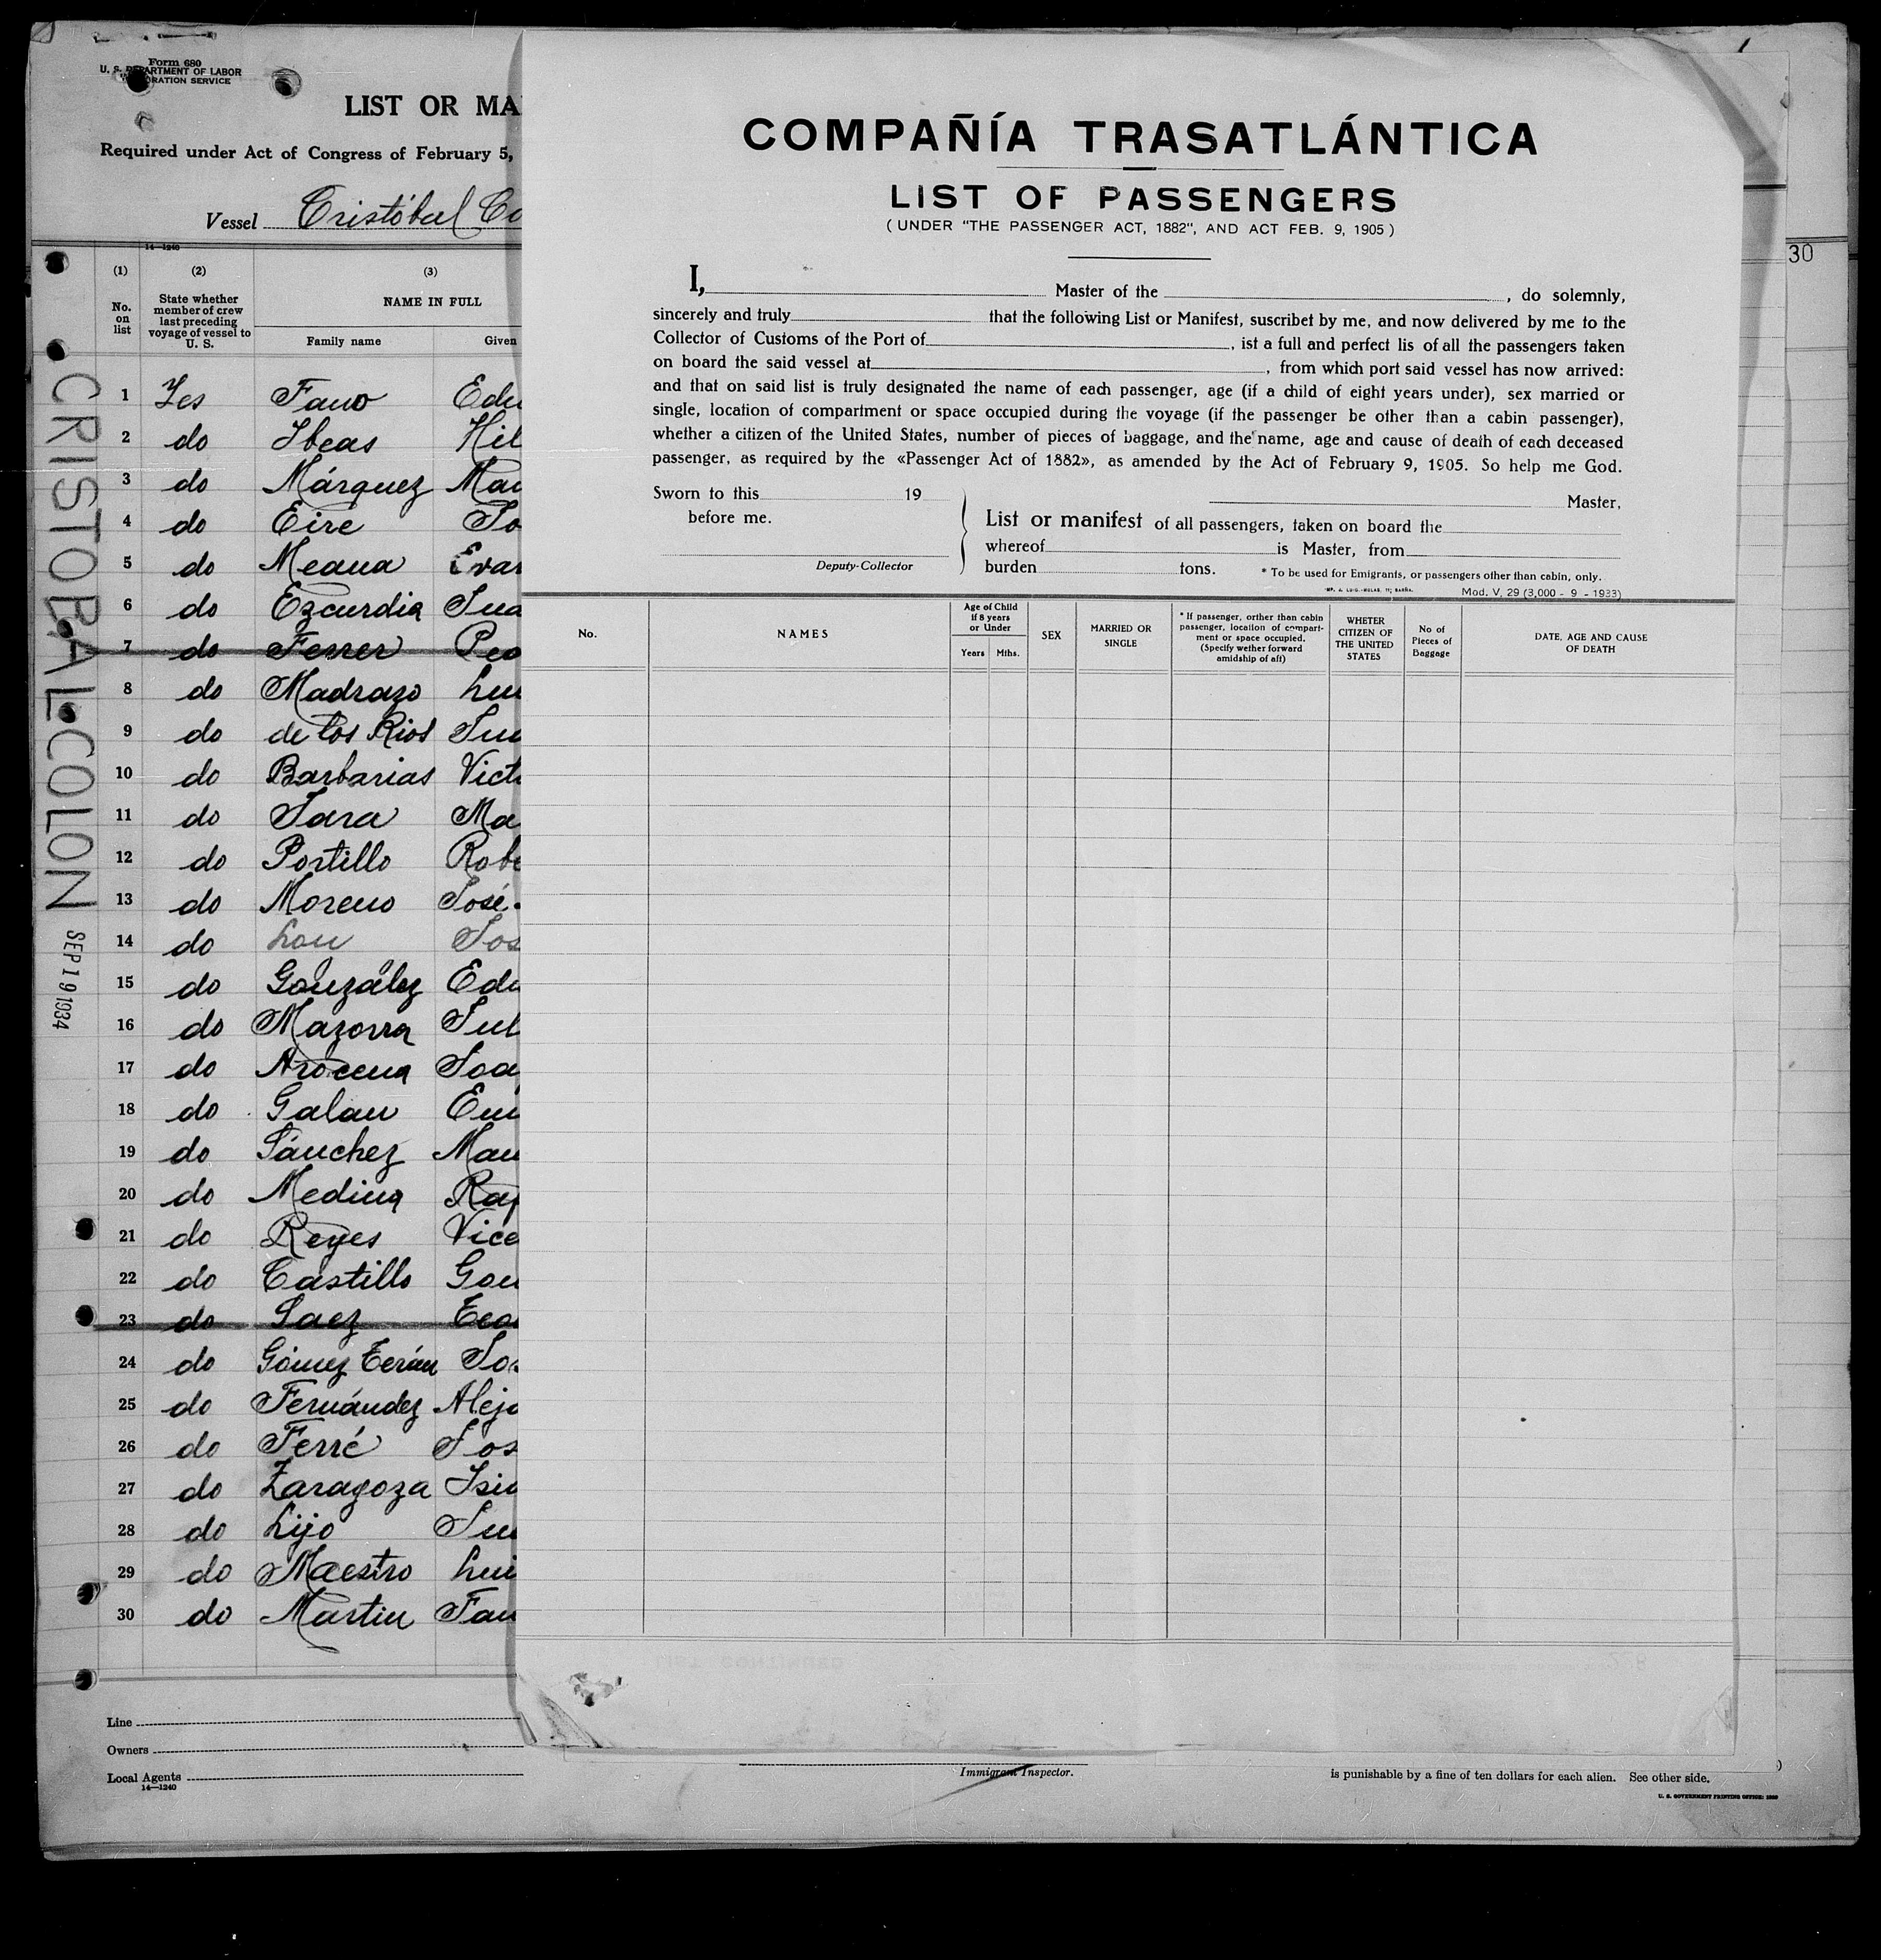 Form 680
U. S. DEPARTMENT OF LABOR
LIST OR MA
Required under Act of Congress of February 5,
Vessel Cristóbal Co
14—1240
(1) (2) (3)
No. on list
State whether member of crew last preceding voyage of vessel to U. S.
NAME IN FULL
Family name Given
1 Yes Fano Edu
2 do Ibeas Hil
3 do Márquez Man
4 do Eire Jo
5 do Meana Evar
6 do Ezcurdia Jua
7 do Ferrer Ped
8 do Madrazo Lui
9 do de los Rios Jua
10 do Barbarias Victo
11 do Jara Ma
12 do Portillo Robe
13 do Moreno José
14 do Lou Jos
15 do González Edu
16 do Mazorra Jul
17 do Arocena Joa
18 do Galan Emi
19 do Sánchez Man
20 do Medina Raf
21 do Reyes Vice
22 do Castillo Gon
23 do Saez Leo
24 do Gómez Terán Jos
25 do Fernández Aleja
26 do Ferré Jos
27 do Zaragoza Isid
28 do Lijo Jua
29 do Maestro Lui
30 do Martin Fau
Line
Owners
Local Agents
14—1240
CRISTOBAL COLON
SEP 19 1934
COMPAÑÍA TRASATLÁNTICA
LIST OF PASSENGERS
(UNDER "THE PASSENGER ACT, 1882", AND ACT FEB. 9, 1905)
I, Master of the , do solemnly,
sincerely and truly that the following List or Manifest, suscribet by me, and now delivered by me to the
Collector of Customs of the Port of , ist a full and perfect lis of all the passengers taken
on board the said vessel at , from which port said vessel has now arrived:
and that on said list is truly designated the name of each passenger, age (if a child of eight years under), sex married or
single, location of compartment or space occupied during the voyage (if the passenger be other than a cabin passenger),
whether a citizen of the United States, number of pieces of baggage, and the name, age and cause of death of each deceased
passenger, as required by the «Passenger Act of 1882», as amended by the Act of February 9, 1905. So help me God.
Sworn to this 19
before me.
Deputy-Collector
Master,
List or manifest of all passengers, taken on board the
whereof is Master, from
burden tons.
* To be used for Emigrants, or passengers other than cabin, only.
Mod. V, 29 (3,000 - 9 - 1933)
No.
NAMES
Age of Child if 8 years or Under
Years Mths.
SEX
MARRIED OR SINGLE
* If passenger, orther than cabin passenger, location of compartment or space occupied. (Specify wether forward amidship of aft)
WHETER CITIZEN OF THE UNITED STATES
No of Pieces of Baggage
DATE, AGE AND CAUSE OF DEATH
30
Immigrant Inspector.
is punishable by a fine of ten dollars for each alien. See other side.